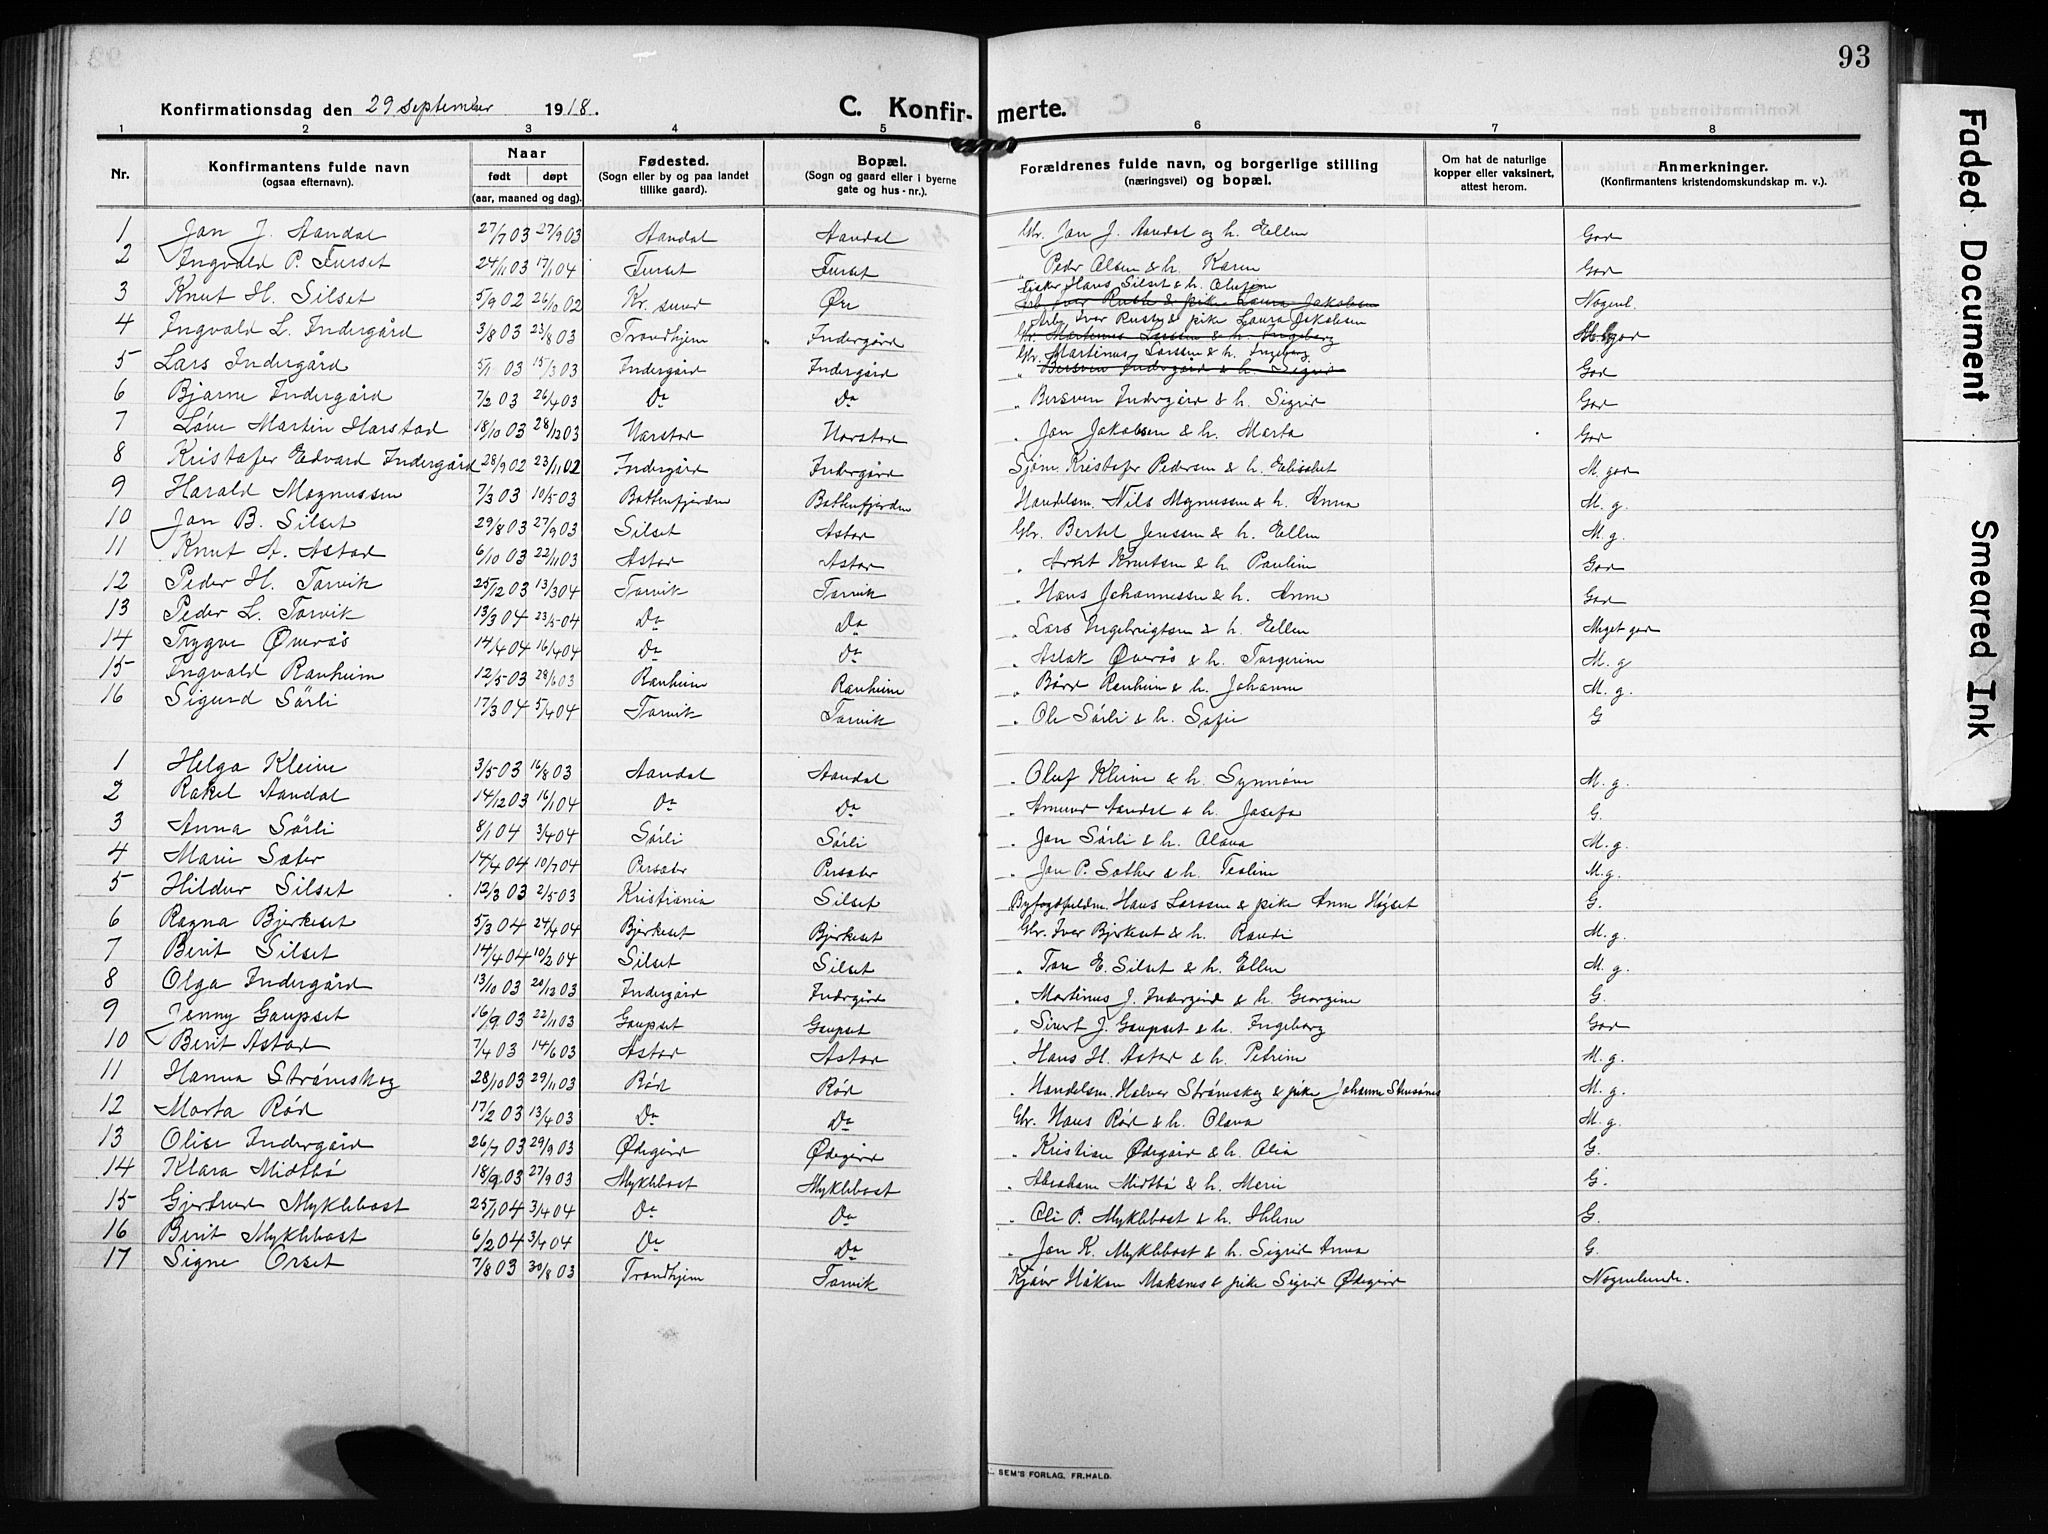 93
Konfirmationsdag den 29 september 1918.
C. Konfirmerte.
1 2 3 4 5 6 7 8
Nr. | Konfirmantens fulde navn (ogsaa efternavn). | Naar født døpt (aar, maaned og dag). | Fødested. (Sogn eller by og paa landet tillike gaard). | Bopæl. (Sogn og gaard eller i byerne gate og hus-nr.). | Forældrenes fulde navn, og borgerlige stilling (næringsvei) og bopæl. | Om hat de naturlige kopper eller vaksinert, attest herom. | Anmerkninger. (Konfirmantens kristendomskundskap m. v.).
1 Jon J. Aandal 27/7 03 27/9 03 Aandal Aandal Gbr. Jon J. Aandal og h. Ellen God
2 Ingvald P. Furset 24/11 03 17/1 04 Furset Furset " Peder Olsen & h. Karen God
3 Knut H. Silset 5/9 02 26/10 02 Kr. sund Øre Fisker Hans Silset & h. Olufine Nogenl.
Arb Iver Rusth & pike Laura Jakobsen
4 Ingvald L. Indergård 3/8 03 23/8 03 Trondhjem Indergård Arb. Iver Rusth & pike Laura Jakobsen M. god
Gbr. Martinus Larssen & h. Ingeborg
5 Lars Indergård 5/1 03 15/3 03 Indergård Indergård Gbr. Martinus Larssen & h. Ingeborg God
" Bersven Indergård & h. Sigrid
6 Bjarne Indergård 7/2 03 26/4 03 Do Do " Bersven Indergård & h. Sigrid God
7 Løve Martin Harstad 18/10 03 28/12 03 Harstad Harstad " Jon Jakobsen & h. Marta God
8 Kristofer Edvard Indergård 28/9 02 23/11 02 Indergård Indergård Sjøm. Kristofer Pedersen & h. Elisabet M. god
9 Harald Magnussen 7/3 03 10/5 03 Battenfjorden Battenfjorden Handelsm. Nils Magnussen & h. Anna M. g.
10 Jon B. Silset 29/8 03 27/9 03 Silset Astad Gbr. Bertel Jenssen & h. Ellen M. g.
11 Knut A. Astad 6/10 03 22/11 03 Astad Astad " Arnt Knutsen & h. Pauline God
12 Peder H. Torvik 25/12 03 13/3 04 Torvik Torvik " Hans Johannessen & h. Anne God
13 Peder L. Torvik 13/3 04 23/5 04 Do Do " Lars Ingebrigtsen & h. Ellen Meget god
14 Trygve Øverås 14/4 04 16/4 04 Do Do " Aslak Øverås & h. Torgerine M. g
15 Ingvald Ranheim 12/5 03 28/6 03 Ranheim Ranheim " Bård Ranheim & h. Johanne M. g.
16 Sigurd Sørli 17/3 04 5/4 04 Torvik Torvik " Ole Sørli & h. Sofie G
1 Helga Kleive 3/5 03 16/8 03 Aandal Aandal " Oluf Kleive & h. Synnøve M. g.
2 Rakel Aandal 14/12 03 16/1 04 Do Do " Amund Aandal & h. Josefa G.
3 Anna Sørli 8/1 04 3/4 04 Sørli Sørli " Jon Sørli & h. Olava M. g.
4 Marie Sæter 14/4 04 10/7 04 Persæter Persæter " Jon P. Sæther & h. Tealine M. g.
5 Hildur Silset 12/3 03 2/5 03 Kristiania Silset Byfogdfuldm. Hans Larssen & pike Anne Høgset G.
6 Ragna Bjerkeset 5/3 04 24/4 04 Bjerkeset Bjerkeset Gbr. Iver Bjerkeset & h. Randi M. g.
7 Berit Silset 14/4 04 10/2 04 Silset Silset " Tore E. Silset & h. Ellen M. g.
8 Olga Indergård 13/10 03 20/12 03 Indergård Indergård " Martinus J. Indergård & h. Georgine G.
9 Jenny Gaupset 16/9 03 22/11 03 Gaupset Gaupset " Sivert J. Gaupset & h. Ingeborg God
10 Berit Astad 7/4 03 14/6 03 Astad Astad " Hans H. Astad & h. Petrine M. g.
11 Hanna Strømskag 28/10 03 29/11 03 Rød Rød " Handelsm. Halvor Strømskag & pike Johanne M. g.
12 Marta Rød 17/2 03 13/4 03 Do Do Gbr. Hans Rød & h. Olava M. g.
13 Olise Indergård 26/7 03 29/9 03 Ødegård Ødegård " Kristian Ødegård & h. Olia G.
14 Klara Midtbø 18/9 03 27/9 03 Myklebost Myklebost " Abraham Midtbø & h. Marie G.
15 Gjertrud Myklebost 25/1 04 3/4 04 Do Do " Ole P. Myklebost & h. G.
16 Berit Myklebost 6/2 04 3/4 04 Do Do " Jon K. Myklebost & h. Sigrid Anna G.
17 Signe Orset 7/8 03 30/8 03 Trondhjem Torvik Håkon Moksnes & pike Sigrid Ødegård Nogenlunde.
SEM'S FORLAG, FR.HALD.
Faded Document
Smeared Ink